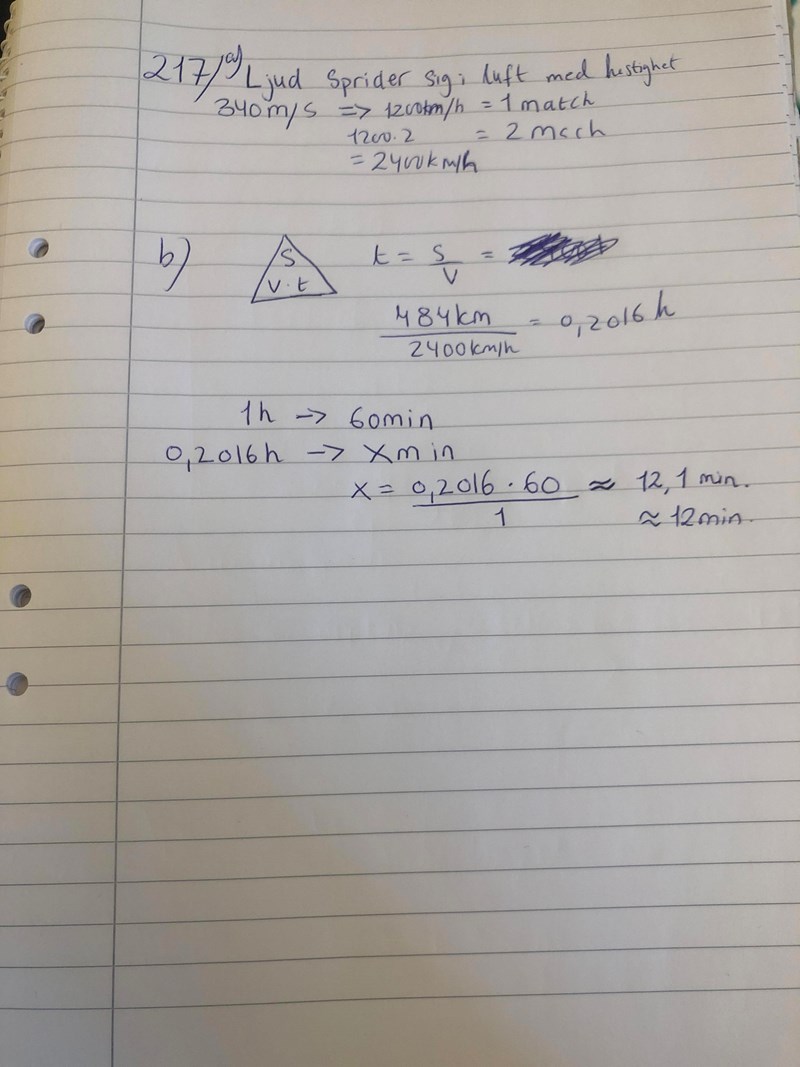 217/a) Ljud Sprider sig i luft med hastighet
340m/s => 1200km/h = 1 match
1200.2 = 2 mach
= 2400km/h
b) S t = S/V =
V·t
484km/2400km/h = 0,2016 h
1h -> 60min
0,2016h -> Xmin
X = 0,2016·60/1 ≈ 12,1 min.
≈ 12min.